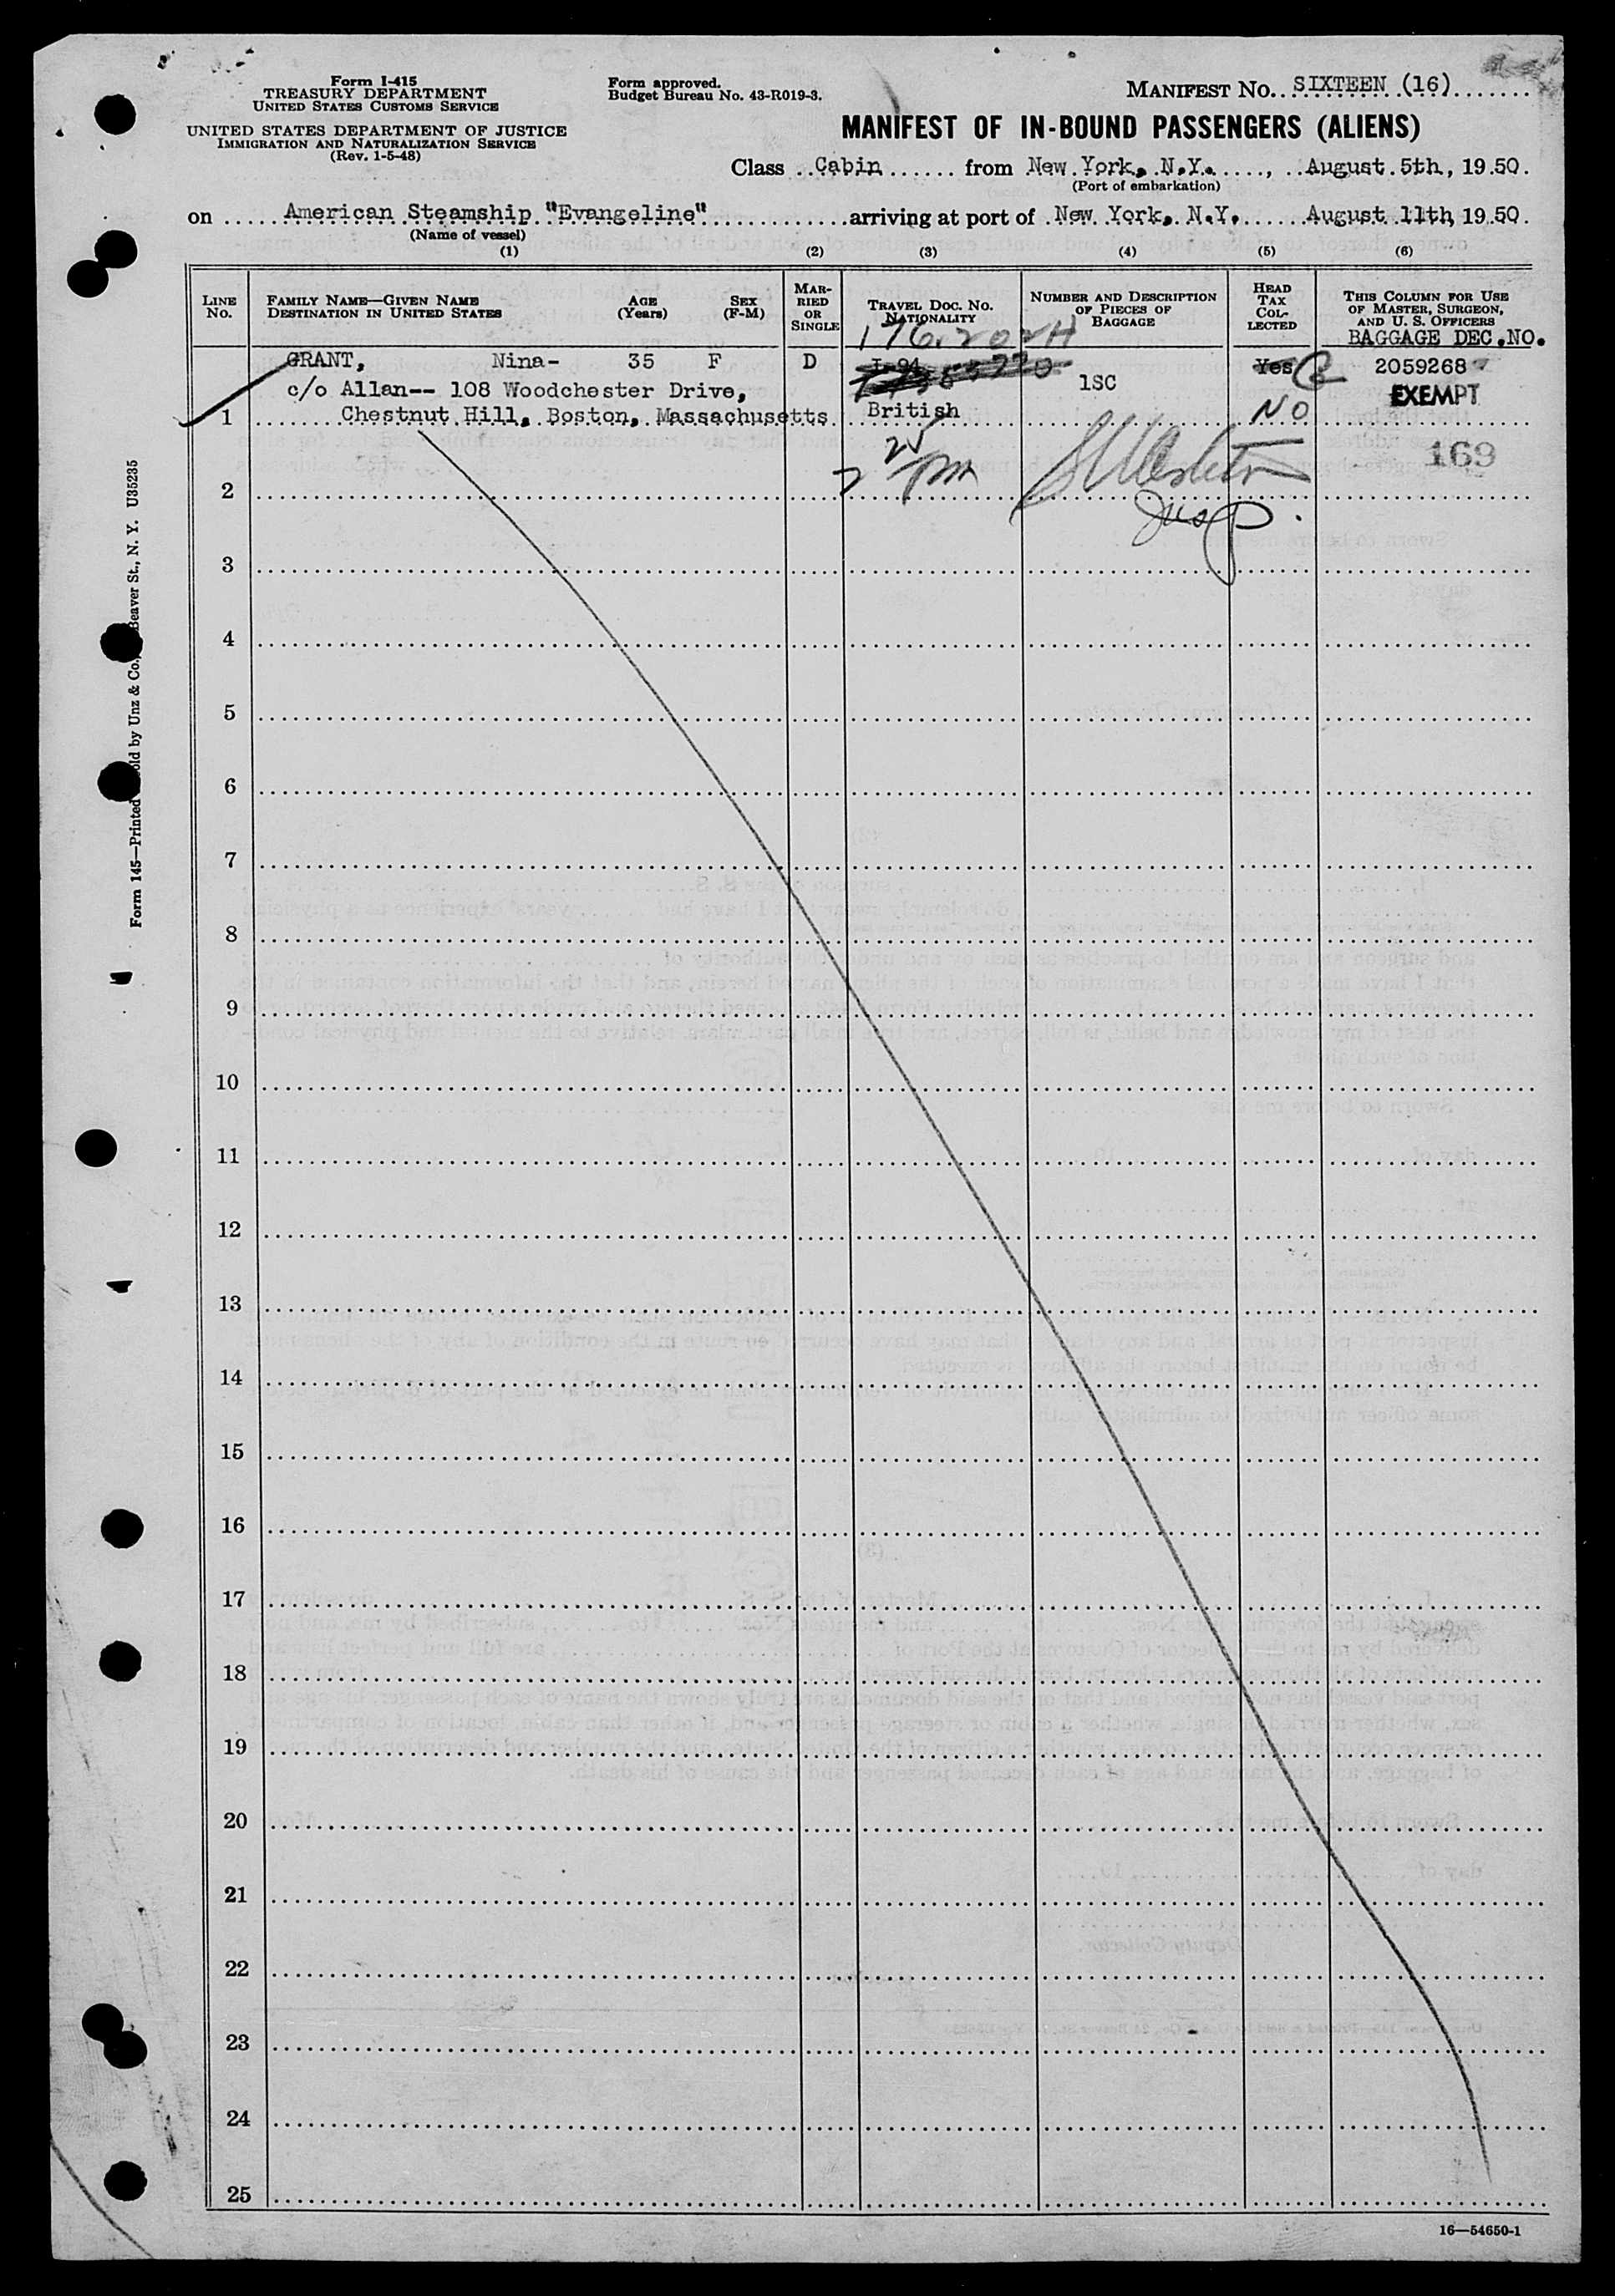 Form I-415
TREASURY DEPARTMENT
UNITED STATES CUSTOMS SERVICE
UNITED STATES DEPARTMENT OF JUSTICE
IMMIGRATION AND NATURALIZATION SERVICE
(Rev. 1-5-48)
Form approved.
Budget Bureau No. 43-R019-3.
MANIFEST NO. SIXTEEN (16)
MANIFEST OF IN-BOUND PASSENGERS (ALIENS)
Class Cabin from New York, N.Y., August 5th, 1950.
(Port of embarkation)
on American Steamship "Evangeline" arriving at port of New York, N.Y. August 11th, 1950.
(Name of vessel)
(1) (2) (3) (4) (5) (6)
LINE NO.
FAMILY NAME—GIVEN NAME AGE SEX
DESTINATION IN UNITED STATES (Years) (F-M)
MARRIED OR SINGLE
TRAVEL DOC. NO. NATIONALITY
NUMBER AND DESCRIPTION OF PIECES OF BAGGAGE
HEAD TAX COLLECTED
THIS COLUMN FOR USE OF MASTER, SURGEON, AND U. S. OFFICERS
BAGGAGE DEC.NO.
GRANT, Nina- 35 F D I-94 Yes 2059268
c/o Allan-- 108 Woodchester Drive, 1SC EXEMPT
1 Chestnut Hill, Boston, Massachusetts British NO
169
2
Insp.
3
4
5
6
7
8
9
10
11
12
13
14
15
16
17
18
19
20
21
22
23
24
25
16—54650-1
Form 145—Printed Sold by Unz & Co., Beaver St., N. Y. U35235